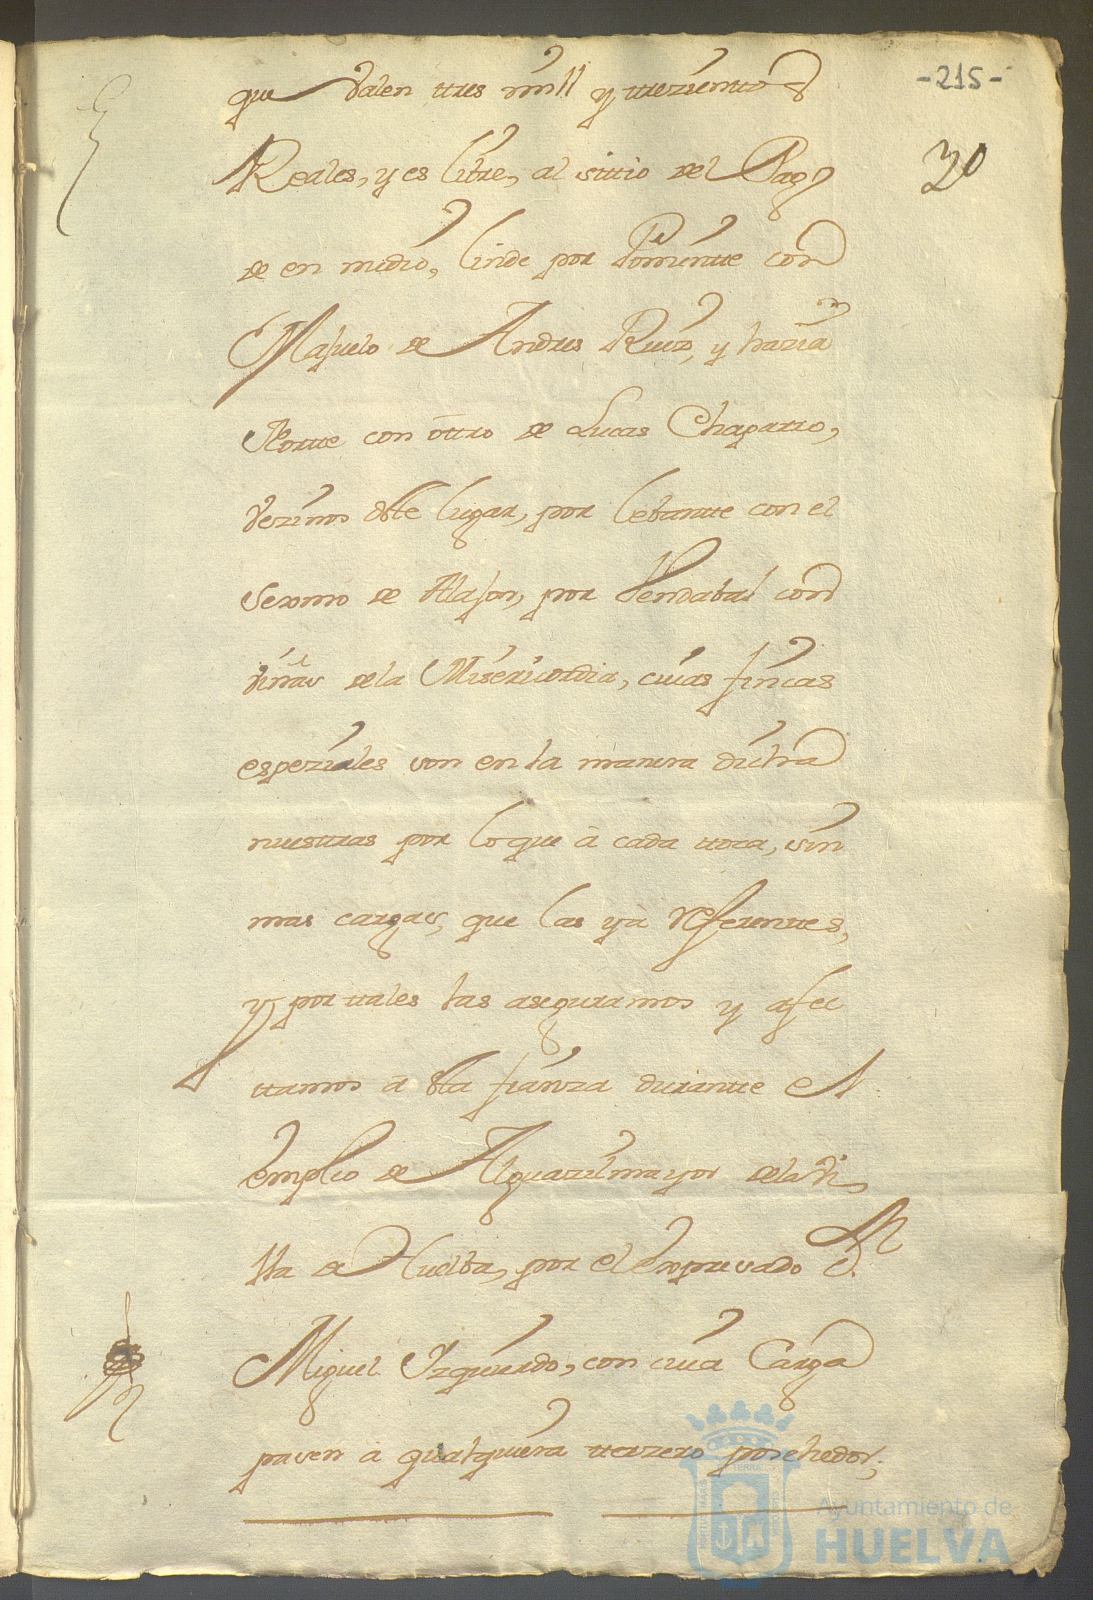 -215-
20
que valen ttres mill y ttrezienttos
Reales, y es libre, al sittio del Pago
de en medio, linde por Poniente con
Majuelo de Andres Ruiz, y hazia
Nortte con ôttro de Lucas Chaparro,
vezinos dste lugar, por lebantte con el
de Aljar, por Vendabal con
viñas de la Misericordia, cuias fincas
espeziales son en la manera dicha
nuestras por lo que â cada ttoca, sin
mas cargas, que las ya referentes,
y por ttales las aseguramos y afec
ttamos â dsta fianza durantte el
empleo de Alguazil mayor de la Vi
lla de Huelba, por el expresado Dn.
Miguel Yzquierdo, con cuia Carga
pasen à qualquiera tterzero posehedor;
Ayuntamiento de
HUELVA